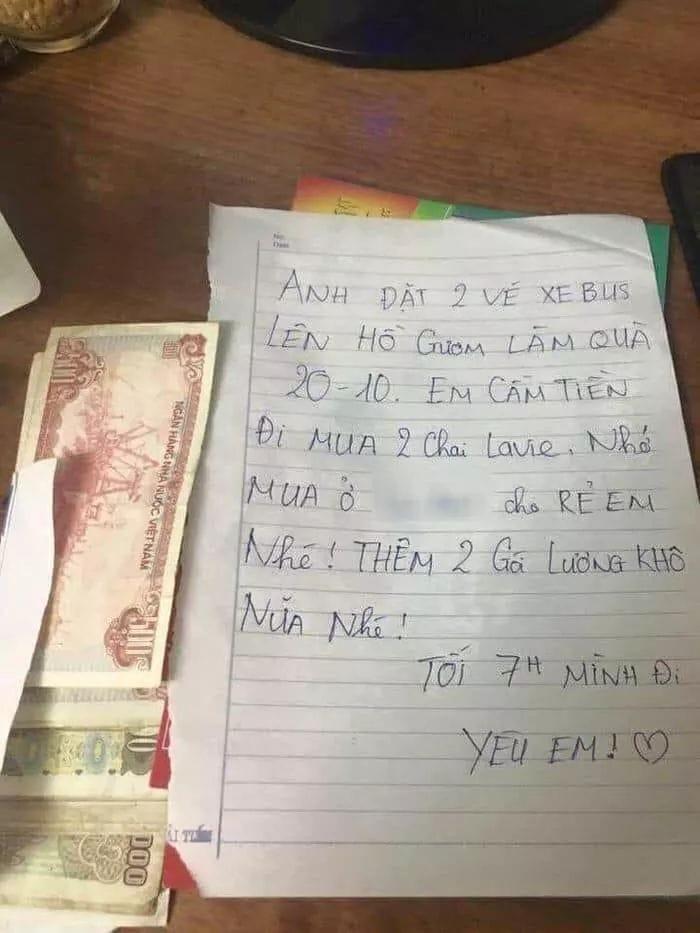 No:
Date:
ANH ĐẶT 2 VÉ XE BUS
LÊN HỒ GƯƠM LÀM QUÀ
20-10. EM CẦM TIỀN
ĐI MUA 2 Chai Lavie. Nhớ
MUA Ở cho RẺ EM
Nhé! THÊM 2 Gá LƯƠNG KHÔ
NỮA Nhé!
TỐI 7H MÌNH ĐI
YÊU EM! ♡
NGÂN HÀNG NHÀ NƯỚC VIỆT NAM
500
000